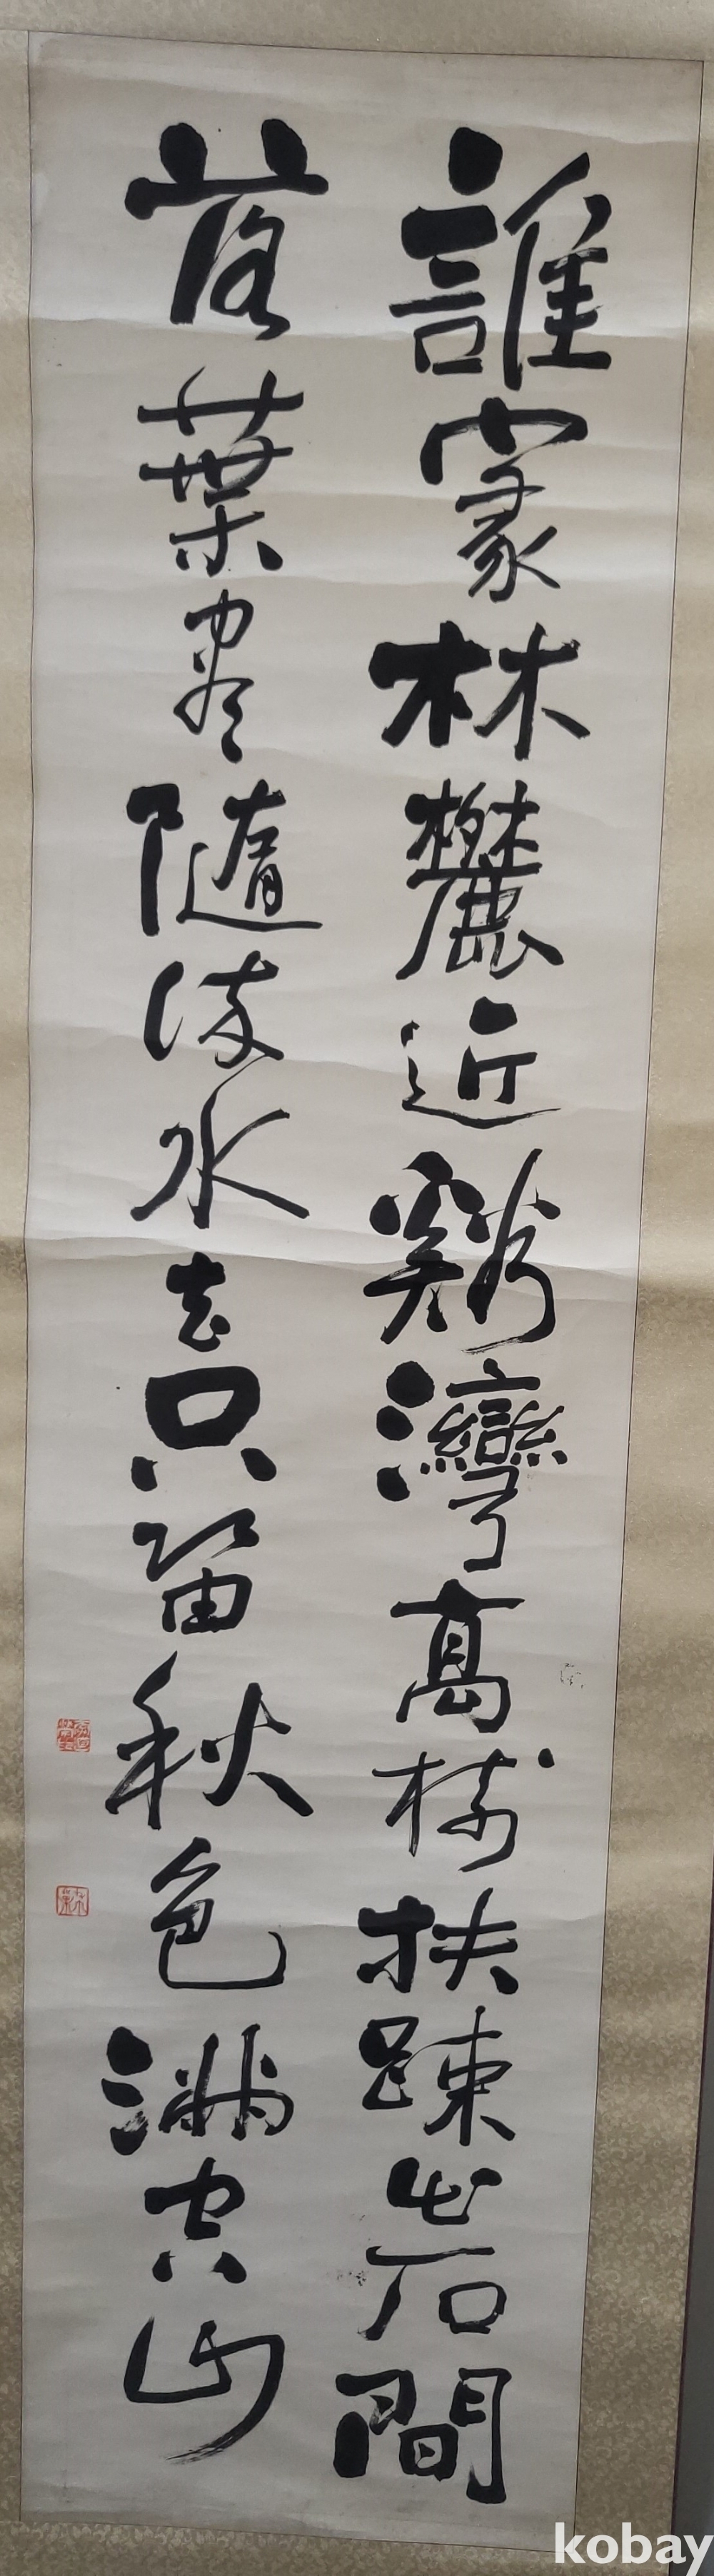 誰家林麓近谿灣高樹扶疎出石間
落葉盡隨流水去只留秋色滿空山
kobay